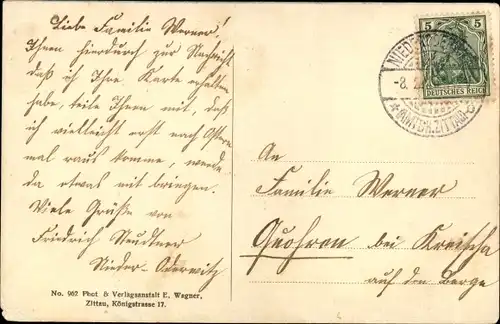 Liebe Familie Werner!
Ihnen hierdurch zur Nachricht
daß ich Ihre Karte erhalten
habe, teile Ihnen mit, daß
ich vielleicht erst nach Ostern
mal raus komme, werde
da etwas mit bringen.
Viele Grüße von
Friedrich Neudtner
Nieder-Oderwitz
No. 962 Phot. & Verlagsanstalt E. Wagner,
Zittau, Königstrasse 17.
5 5
DEUTSCHES REICH
NIEDER
-8.2
(AMTSH. ZITTAU)
An
Familie Werner
Quohren bei Kreischa
auf den Berge